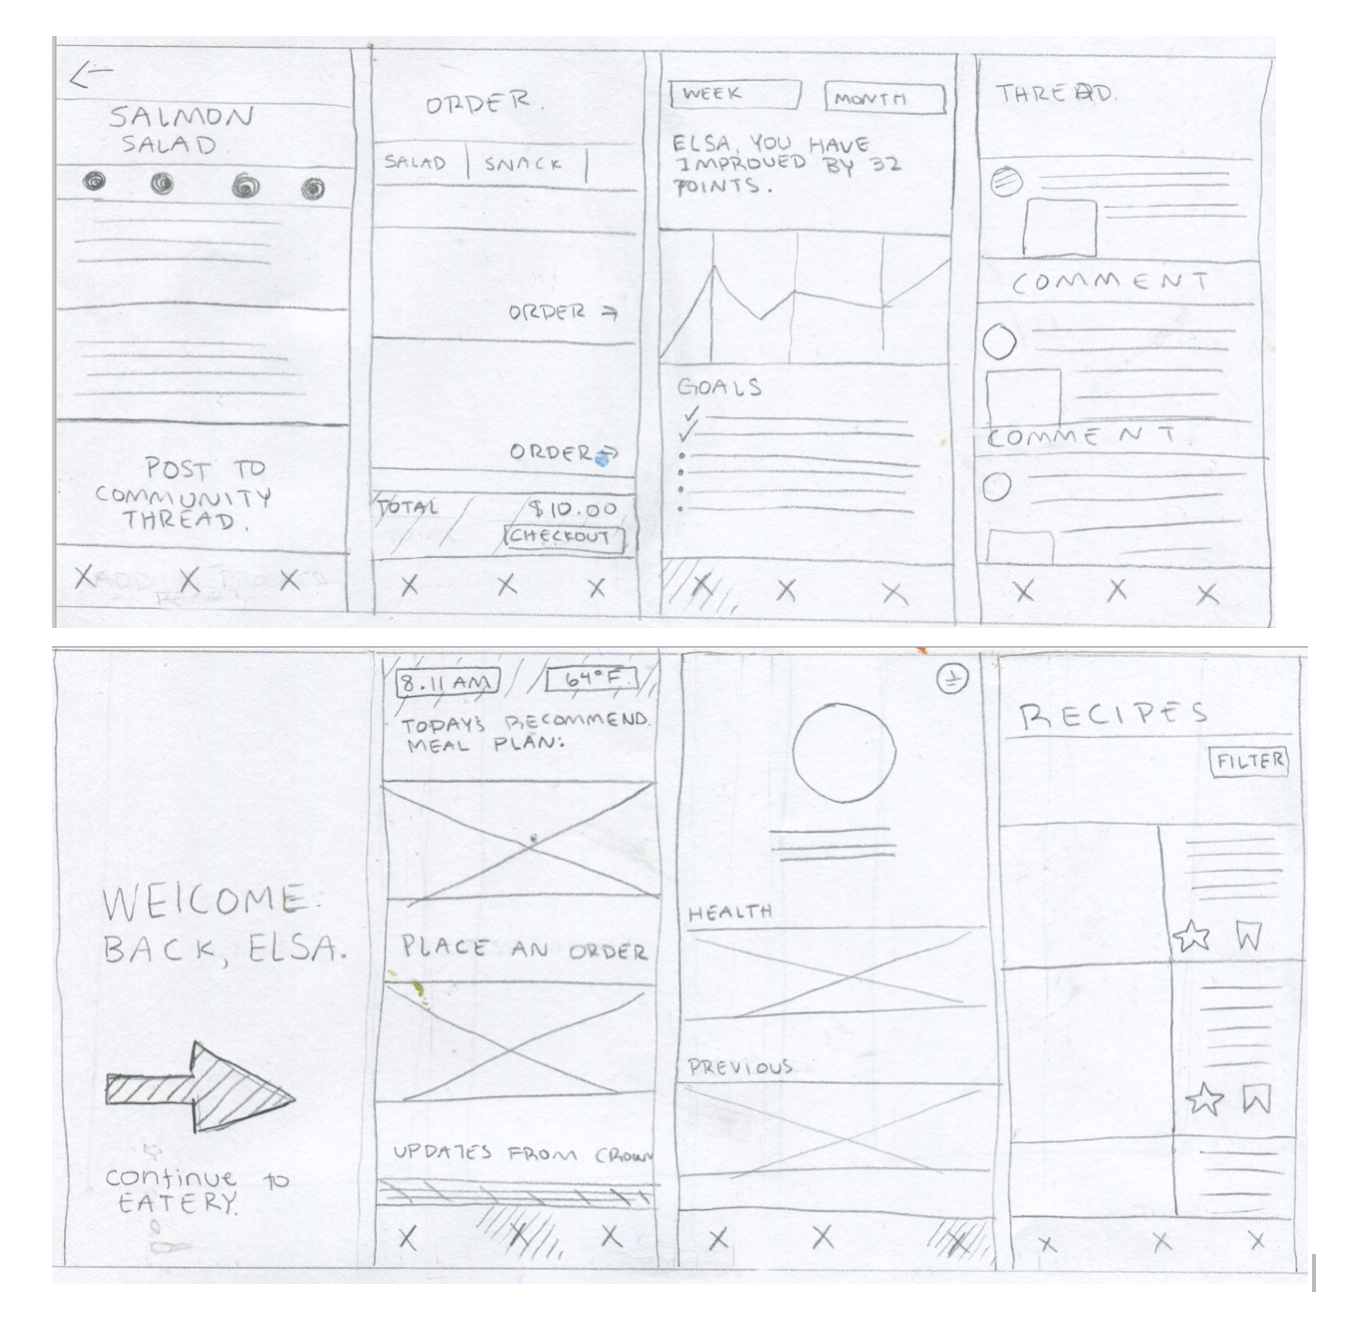 SALMON
SALAD
POST TO
COMMUNITY
THREAD.
ORDER.
SALAD | SNACK |
ORDER →
ORDER →
TOTAL $10.00
CHECKOUT
WEEK MONTH
ELSA, YOU HAVE
IMPROVED BY 32
POINTS.
GOALS
THREAD.
COMMENT
COMMENT
WElCOME
BACK, ELSA.
continue to
EATERY.
8.11 AM 64°F
TODAY'S RECOMMEND.
MEAL PLAN:
PLACE AN ORDER
UPDATES FROM CROWN
HEALTH
PREVIOUS
RECIPES
FILTER